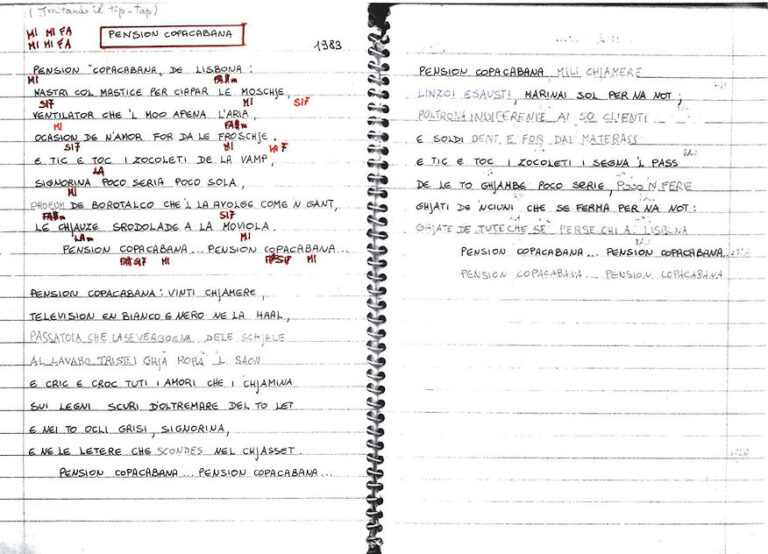 (Imitando il tip-tap)
MI MI FA
MI MI FA
PENSION COPACABANA
1983
PENSION "COPACABANA, DE LISBONA:
MI FA#m
NASTRI COL MASTICE PER CIAPAR LE MOSCHJE,
SI7 MI SI7
VENTILATOR CHE 'L MOO APENA L'ARIA,
MI FA#m
OCASION DE N'AMOR FOR DA LE FROSCHJE.
SI7 MI MI7
E TIC E TOC I ZOCOLETI DE LA VAMP,
LA
SIGNORINA POCO SERIA POCO SOLA,
MI
PROFUM DE BOROTALCO CHE 'L LA AVOLGE COME N GANT,
FA#m SI7
LE CHJAUZE SRODOLADE A LA MOVIOLA.
LAm MI
PENSION COPACABANA... PENSION COPACABANA...
FA# SI7 MI FA# SI7 MI
PENSION COPACABANA: VINTI CHJAMERE,
TELEVISION EN BIANCO E NERO NE LA HALL,
PASSATOIA CHE LASE VERGOGNA DELE SCHJALE
AL LAVABO TRISTE I GHJA ROBÀ 'L SAON
E CRIC E CROC TUTI I AMORI CHE I CHJAMINA
SUI LEGNI SCURI D'OLTREMARE DEL TO LET
E NEI TO OCLI GRISI, SIGNORINA,
E NE LE LETERE CHE SCONDES NEL CHJASSET.
PENSION COPACABANA... PENSION COPACABANA...
PENSION COPACABANA, MILI CHJAMERE
LINZOI ESAUSTI, MARINAI SOL PER NA NOT;
POLTRONA INDIFERENTE AI SO CLIENTI
E SOLDI DENT E FOR DAL MATERASS
E TIC E TOC I ZOCOLETI I SEGNA 'L PASS
DE LE TO GHJAMBE POCO SERIE, POCO 'N FERIE
GHJATI DE NCIUNI CHE SE FERMA PER NA NOT:
GHJATE DE TUTE CHE SE PERSE CHI A LISBONA
PENSION COPACABANA... PENSION COPACABANA...
PENSION COPACABANA... PENSION COPACABANA